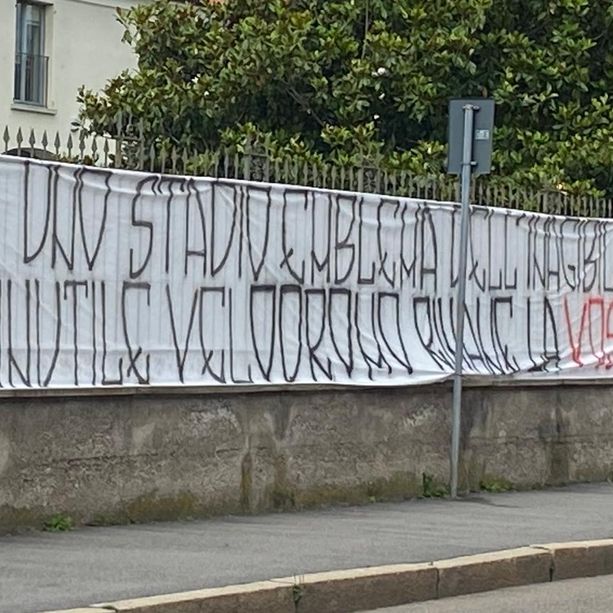 UNO STADIO EMBLEMA DELL'INAGIBIL
INUTILE VELODROMO RIMANE LA VOS